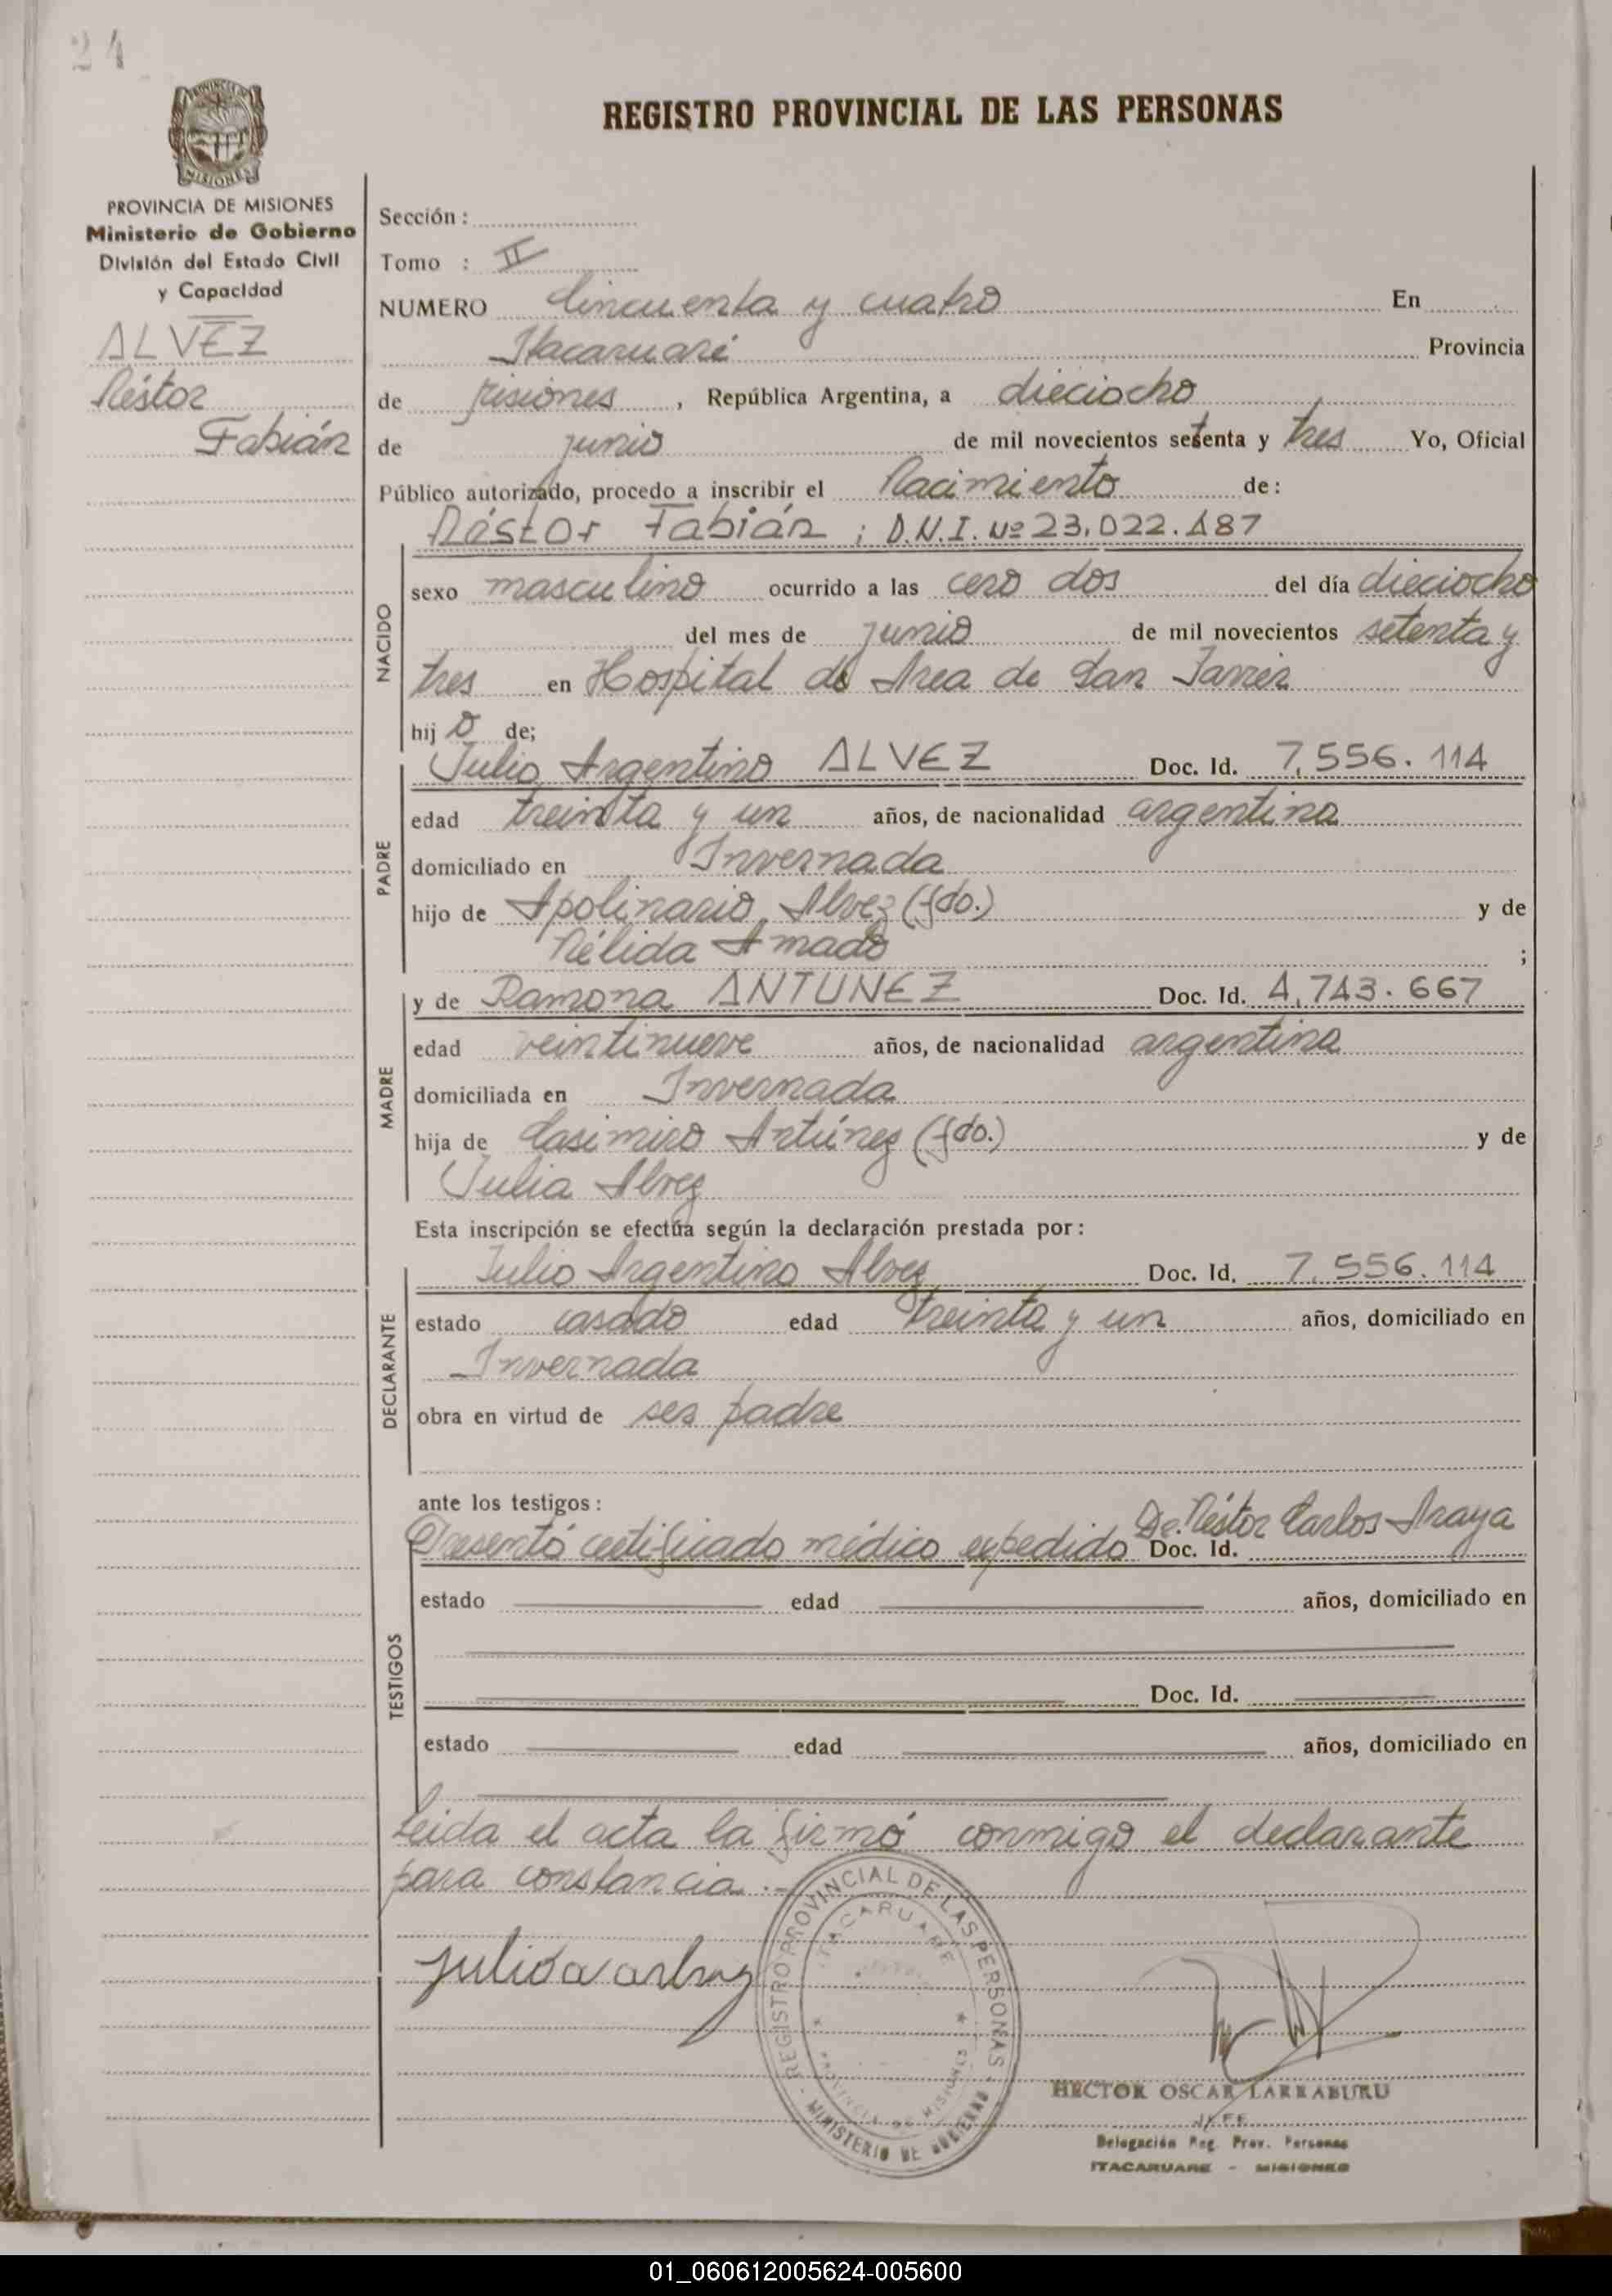 24
REGISTRO PROVINCIAL DE LAS PERSONAS
PROVINCIA DE MISIONES
Ministerio de Gobierno
División del Estado Civil
y Capacidad
ALVEZ
Néstor
Fabián
Sección :
Tomo : II
NUMERO Cincuenta y cuatro En
Itacaruaré Provincia
de Misiones, República Argentina, a dieciocho
de junio de mil novecientos setenta y tres Yo, Oficial
Público autorizado, procedo a inscribir el Nacimiento de:
Néstor Fabián ; D.N.I. Nº 23.022.187
NACIDO
sexo masculino ocurrido a las cero dos del día dieciocho
del mes de junio de mil novecientos setenta y
tres en Hospital de Area de San Javier
hijo de;
PADRE
Julio Argentino ALVEZ Doc. Id. 7.556.114
edad treinta y un años, de nacionalidad argentina
domiciliado en Invernada
hijo de Apolinario Alvez (fdo.) y de
Nélida Amado ;
MADRE
y de Ramona ANTUNEZ Doc. Id. 4.743.667
edad veintinueve años, de nacionalidad argentina
domiciliada en Invernada
hija de Casimiro Antúnez (fdo.) y de
Julia Alvez
Esta inscripción se efectúa según la declaración prestada por:
DECLARANTE
Julio Argentino Alvez Doc. Id. 7.556.114
estado casado edad treinta y un años, domiciliado en
Invernada
obra en virtud de ser padre
ante los testigos:
TESTIGOS
Presentó certificado médico expedido Dr. Néstor Carlos Araya Doc. Id.
estado edad años, domiciliado en
Doc. Id.
estado edad años, domiciliado en
Leida el acta la firmó conmigo el declarante
para constancia.-
REGISTRO PROVINCIAL DE LAS PERSONAS
ITACARUARE
PROVINCIA DE MISIONES
MINISTERIO DE GOBIERNO
HECTOR OSCAR LARRABURU
JEFE
Delegación Reg. Prov. Personas
ITACARUARE - MISIONES
01_060612005624-005600